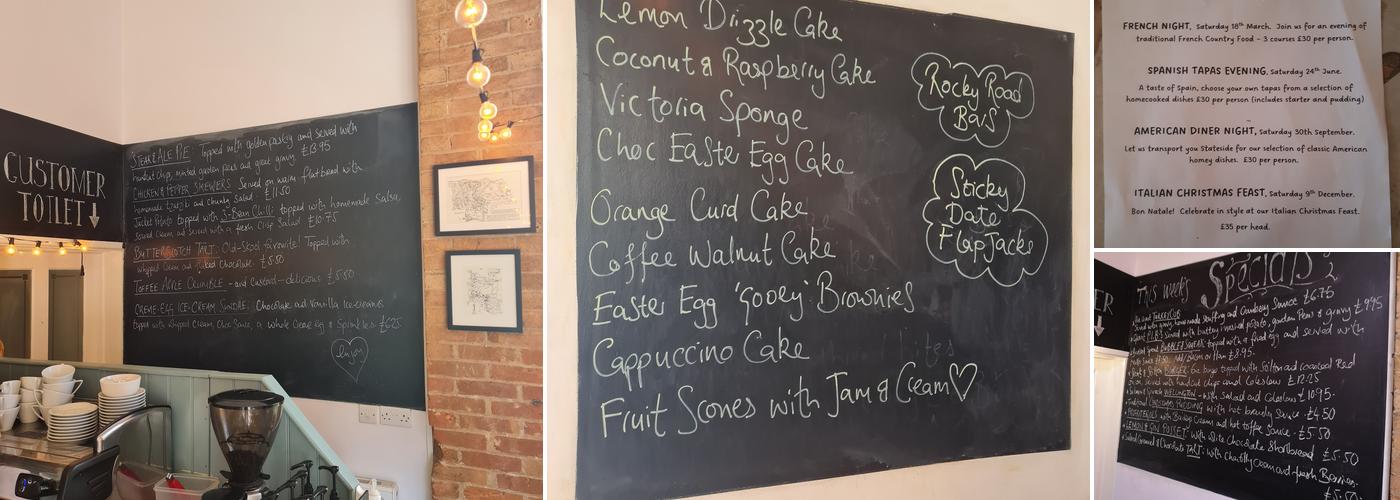 CUSTOMER
TOILET ↓
STEAK & ALE PIE Topped with golden pastry and served with
handcut chips, minted garden peas and great gravy. £13.95
CHICKEN & PEPPER SKEWERS Served on warm flatbread with
homemade tzatziki and chunky salad £11.50
Jacket Potato topped with 5-Bean Chilli: topped with homemade Salsa,
Soured Cream and served with a fresh Crisp Salad £10.75
BUTTERSCOTCH TART: Old-Skool favourite! Topped with
whipped Cream and flaked Chocolate. £5.50
TOFFEE APPLE CRUMBLE - and Custard - delicious £5.50
CREME EGG ICE-CREAM SUNDAE. Chocolate and Vanilla Ice-cream
topped with whipped Cream, Choc Sauce, a whole Creme Egg & Sprinkles £6.25
Enjoy
Lemon Drizzle Cake
Coconut & Raspberry Cake
Victoria Sponge
Choc Easter Egg Cake
Orange Curd Cake
Coffee Walnut Cake
Easter Egg 'gooey' Brownies
Cappuccino Cake
Fruit Scones with Jam & Cream♡
Rocky Road
Bars
Sticky
Date
FlapJacks
FRENCH NIGHT, Saturday 18th March. Join us for an evening of
traditional French Country Food - 3 courses £30 per person.
SPANISH TAPAS EVENING, Saturday 24th June.
A taste of Spain, choose your own tapas from a selection of
homecooked dishes £30 per person (includes starter and pudding)
AMERICAN DINER NIGHT, Saturday 30th September.
Let us transport you Stateside for our selection of classic American
homey dishes. £30 per person.
ITALIAN CHRISTMAS FEAST, Saturday 9th December.
Bon Natale! Celebrate in style at our Italian Christmas Feast.
£35 per head.
ER
This weeks Specials
TURKEY CLUB
Served with gravy, homemade stuffing and Cranberry Sauce £6.75
served with buttery mustard potato, garden Peas & gravy £9.95
BUBBLE & SQUEAK topped with a fried egg and served with
£8.95.
BURGER 6oz burger topped with Stilton and roasted Red
onion, served with handcut chips and Coleslaw £12.25
WELLINGTON - with salad and Coleslaw £10.95.
CHRISTMAS PUDDING with hot brandy Sauce £4.50
with Biscoff Cream and hot toffee Sauce £5.50
LEMON & GIN POSSET: with White Chocolate Shortbread £5.50
Salted Caramel & Chocolate TART: with Chantilly Cream and fresh Berries.
£5.50.